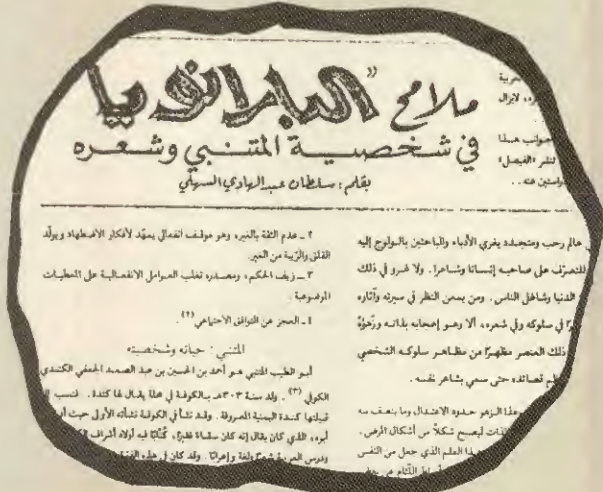 ملامح "البارانويا
في شخصيـــة المتنبي وشـــعره
بقلم: سلطان عبدالهادي السهلي
لايزال
جوانب هذا
لنشر «الفيصل»
عالم رحب ومتجدد يغري الأدباء والباحثين بالولوج إليه
للتعرّف على صاحبه إنسانا وشاعرا. ولا غرو في ذلك
الدنيا وشاغل الناس. ومن يمعن النظر في سيرته وآثاره
في سلوكه وفي شعره، ألا وهو إعجابه بذاته وزهوّه
ذلك العنصر مظهرًا من مظاهر سلوكه الشخصي
قصائده حتى سمي بشاعر نفسه.
هذا الزهو حدود الاعتدال وما يتصف به
الذات ليصبح شكلاً من أشكال المرض.
هذا العلم الذي جعل من النفس
٢ ـ عدم الثقة بالغير، وهو موقف انفعالي يمهّد لأفكار الاضطهاد ويولّد
القلق والرّيبة من الغير.
٣ ـ زيف الحكم، ومصدره تغلب العوامل الانفعالية على المعطيات
الموضوعية.
٤ ـ العجز عن التوافق الاجتماعي (٢).
المتنبي: حياته وشخصيته
أبو الطيب المتنبي هو أحمد بن الحسين بن عبد الصمد الجعفي الكندي
الكوفي (٣). ولد سنة ٣٠٣ هـ بالكوفة في محلة يقال لها كندة. فنسب
قبيلتها كندة اليمنية المعروفة. وقد نشأ في الكوفة نشأته الأولى حيث
أبوه، الذي كان يقال إنه كان سقاء فقيرًا، كُتّابًا فيه أولاد أشراف
ودرس العربية شعرًا ولغة وإعرابًا. وقد كان في هذه